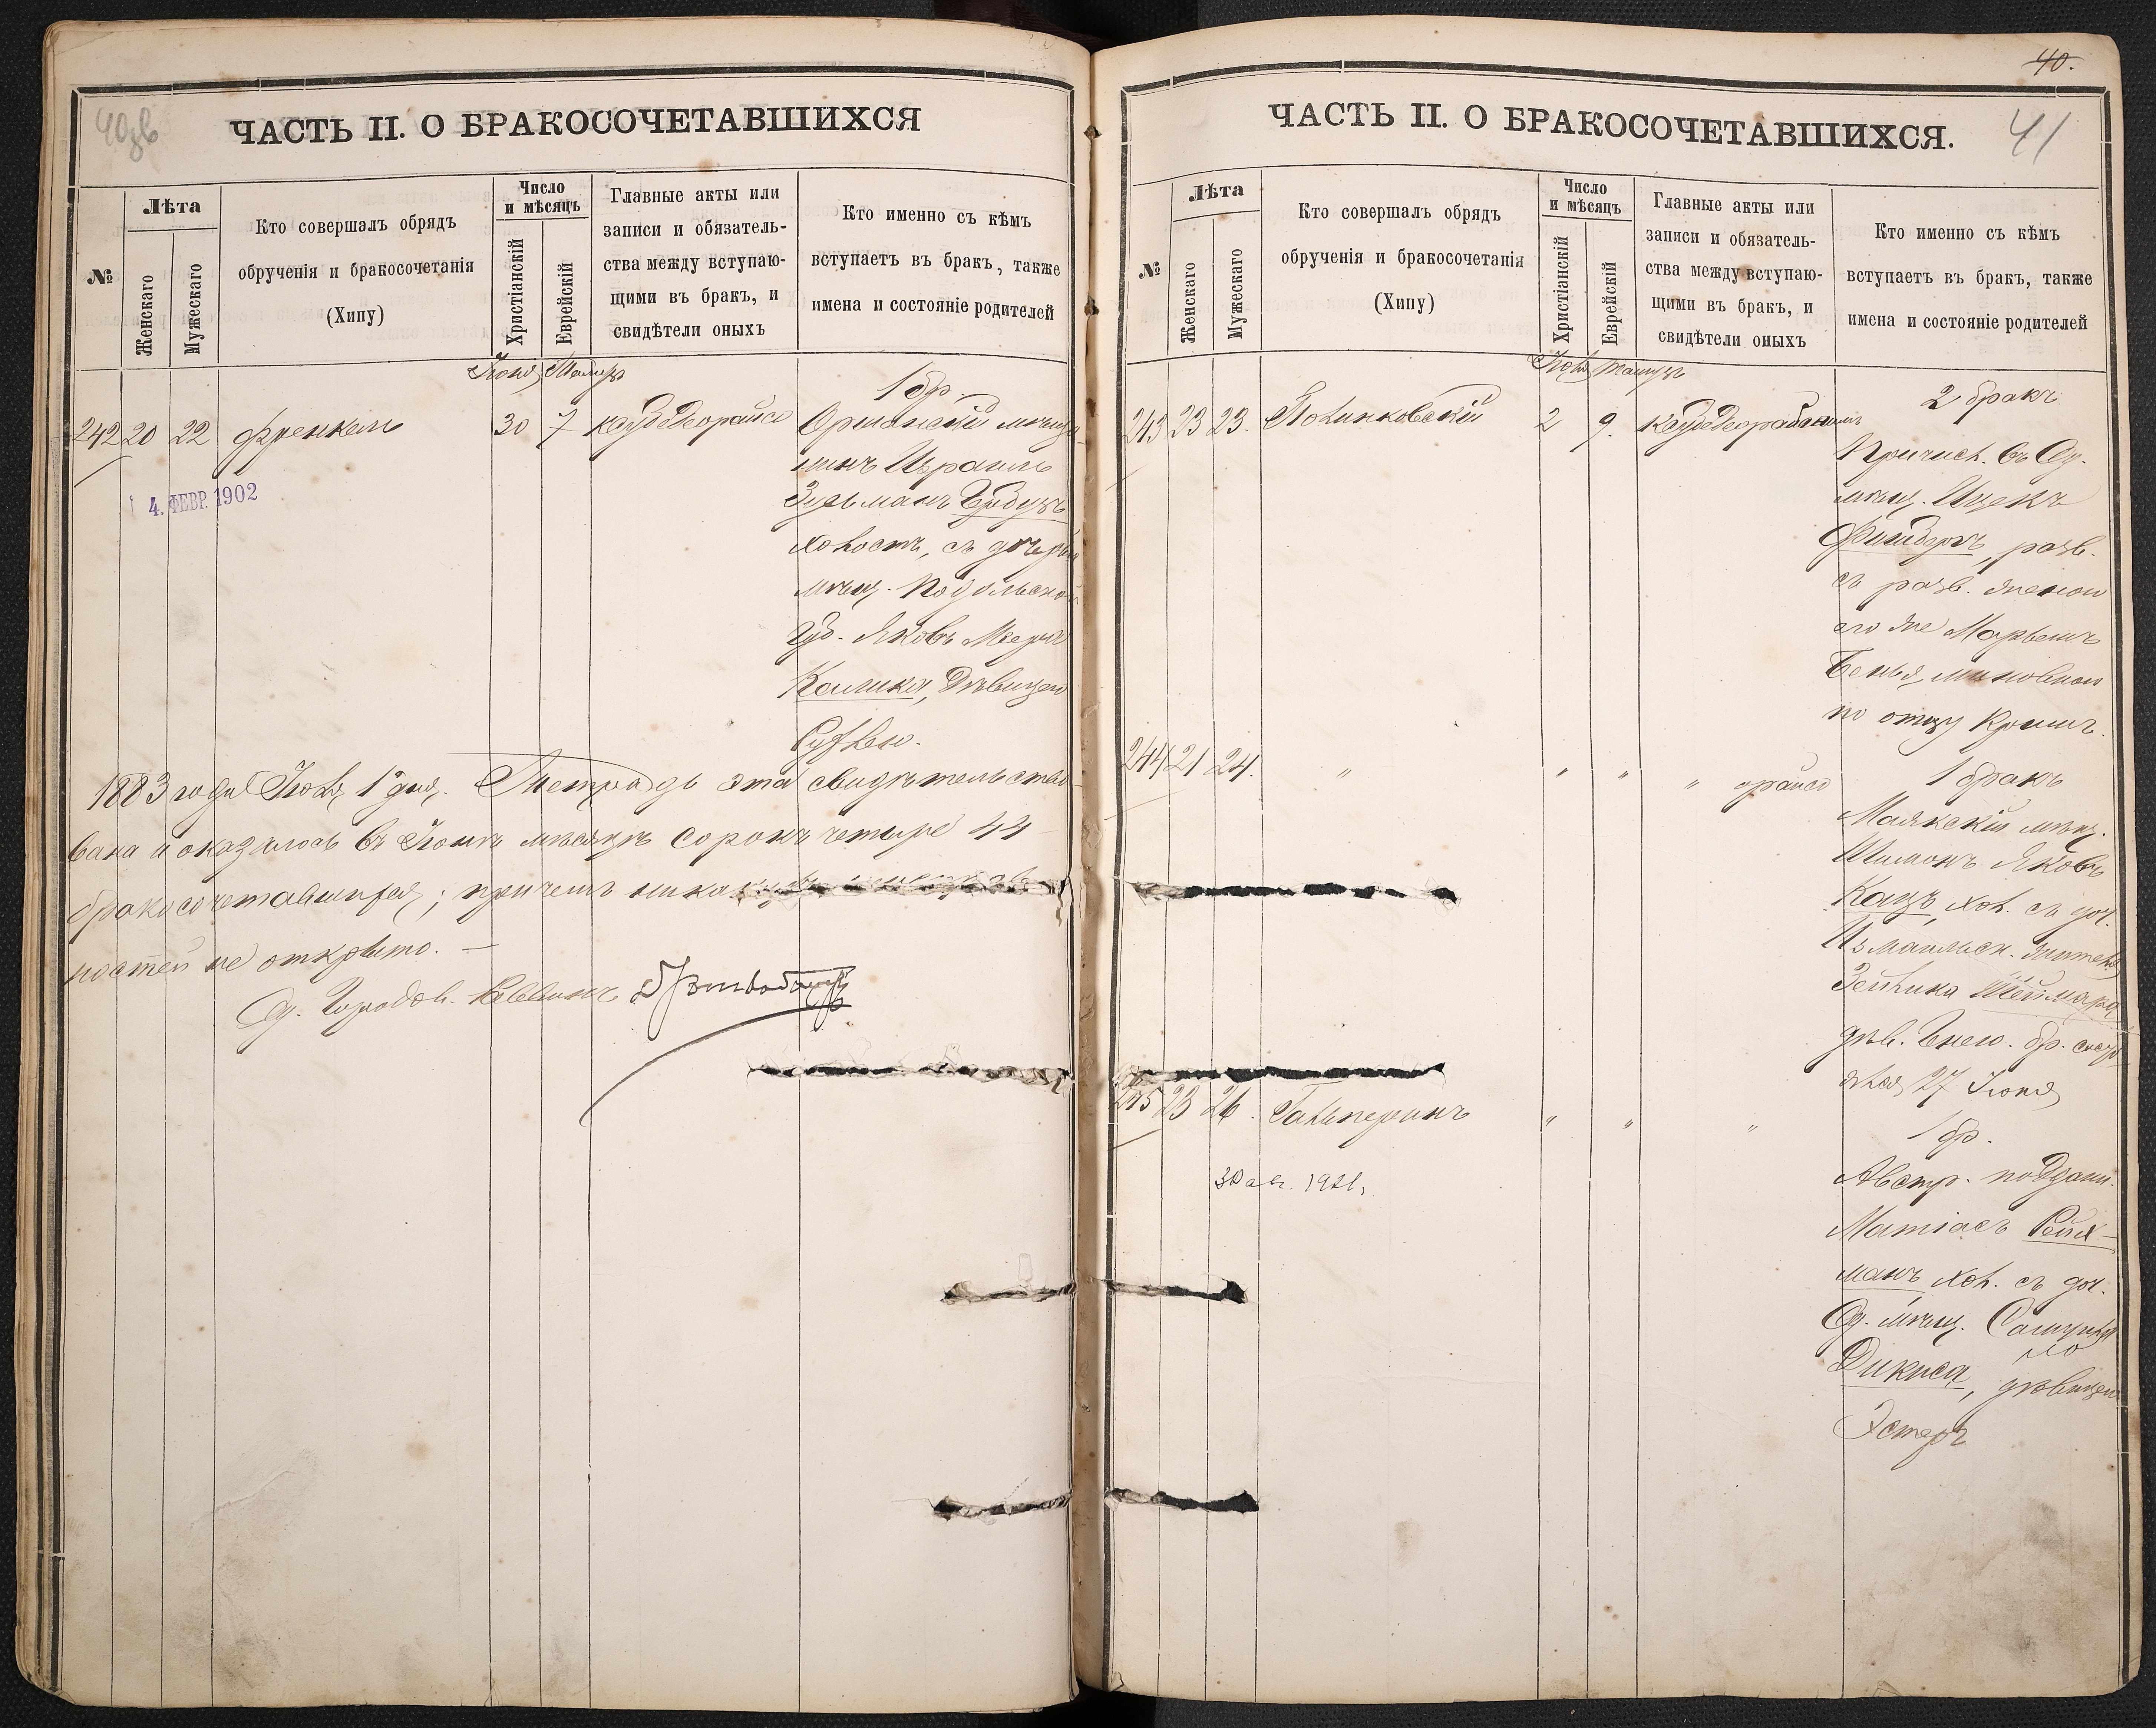 40об
ЧАСТЬ II. О БРАКОСОЧЕТАВШИХСЯ
№
Лѣта
Женскаго
Мужескаго
Кто совершалъ обрядъ
обрученія и бракосочетанія
(Хипу)
Число
и мѣсяцъ
Христіанскій
Еврейскій
Главные акты или
записи и обязатель-
ства между вступаю-
щими въ бракъ, и
свидѣтели оныхъ
Кто именно съ кѣмъ
вступаетъ въ бракъ, также
имена и состояніе родителей
Іюня Тамузъ
1 бр.
242 20 22 Френкель 30 7
Оршанскій мѣща-
нинъ Израиль
Зусьманъ
холостъ, съ дочерью
мѣщ. Подольской
губ. Яковъ Меера
Калика, дѣвицею
Рухлею.
4. ФЕВР. 1902
1883 года Іюля 1 дня. Тетрадь эта свидѣтельство-
вана и оказалось въ Іюнѣ мѣсяцѣ сорокъ четыре 44
бракосочетавшихся; причемъ
ностей не открыто. —
Од. Городов. Раввинъ
40.
41
ЧАСТЬ II. О БРАКОСОЧЕТАВШИХСЯ.
№
Лѣта
Женскаго
Мужескаго
Кто совершалъ обрядъ
обрученія и бракосочетанія
(Хипу)
Число
и мѣсяцъ
Христіанскій
Еврейскій
Главные акты или
записи и обязатель-
ства между вступаю-
щими въ бракъ, и
свидѣтели оныхъ
Кто именно съ кѣмъ
вступаетъ въ бракъ, также
имена и состояніе родителей
Іюля Тамузъ
2 бракъ
243 23 23. Полинковскій 2 9.
Причисл. въ Од.
мѣщ. Ицекъ
Фишберъ, разв.
съ разв. женою
его же Марьемъ
Беньяминовною
по отцу Кримъ.
244 21 24. " " " " ораисо
1 бракъ
Маякскій мѣщ.
Шимонъ Яковъ
Кацъ, хол. съ доч.
Измаильск. жителя
Зейлика
дѣв. Енею. бр. состо-
ялся 27 Іюня
245 23 26. Гальперинъ " " "
1 бр.
Австр. поддан.
Матіасъ Рейх-
манъ хол. съ доч.
Од. мѣщ. Самуила
Дикиса, дѣвицею
Эстеръ